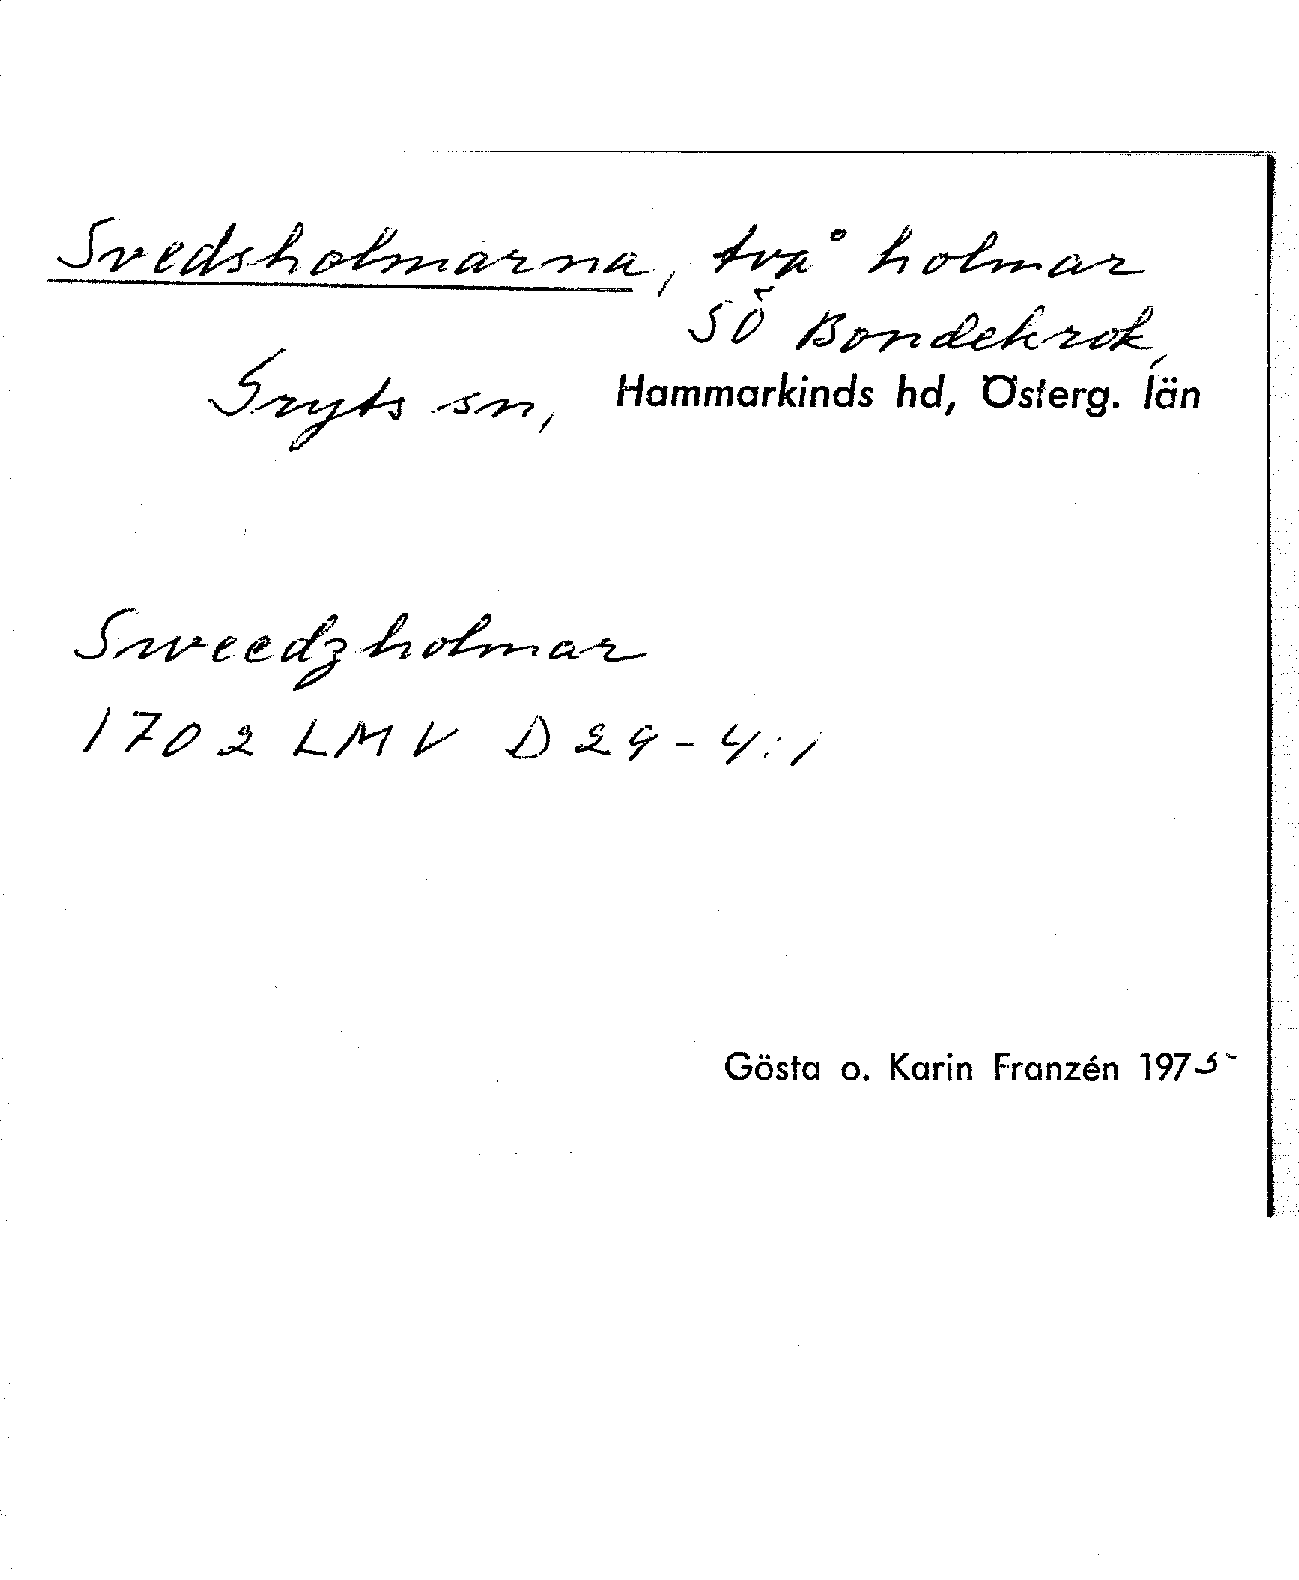 Svedsholmarna, två holmar
SÖ Bondekrok,
Gryts sn, Hammarkinds hd, Österg. län
Sweedzholmar
1702 LMV D 29-4:1
Gösta o. Karin Franzén 1975